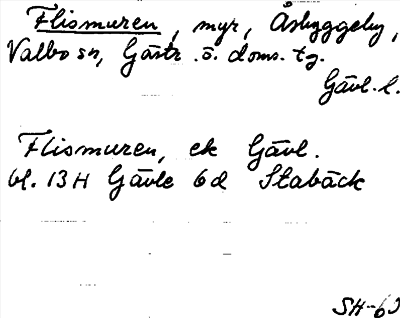 Flismuren, myr, Åsbyggeby,
Valbo sn, Gästr. ö. doms. tg.
Gävl. l.
Flismuren, ek Gävl.
bl. 13H Gävle 6d Stabäck
SH-63